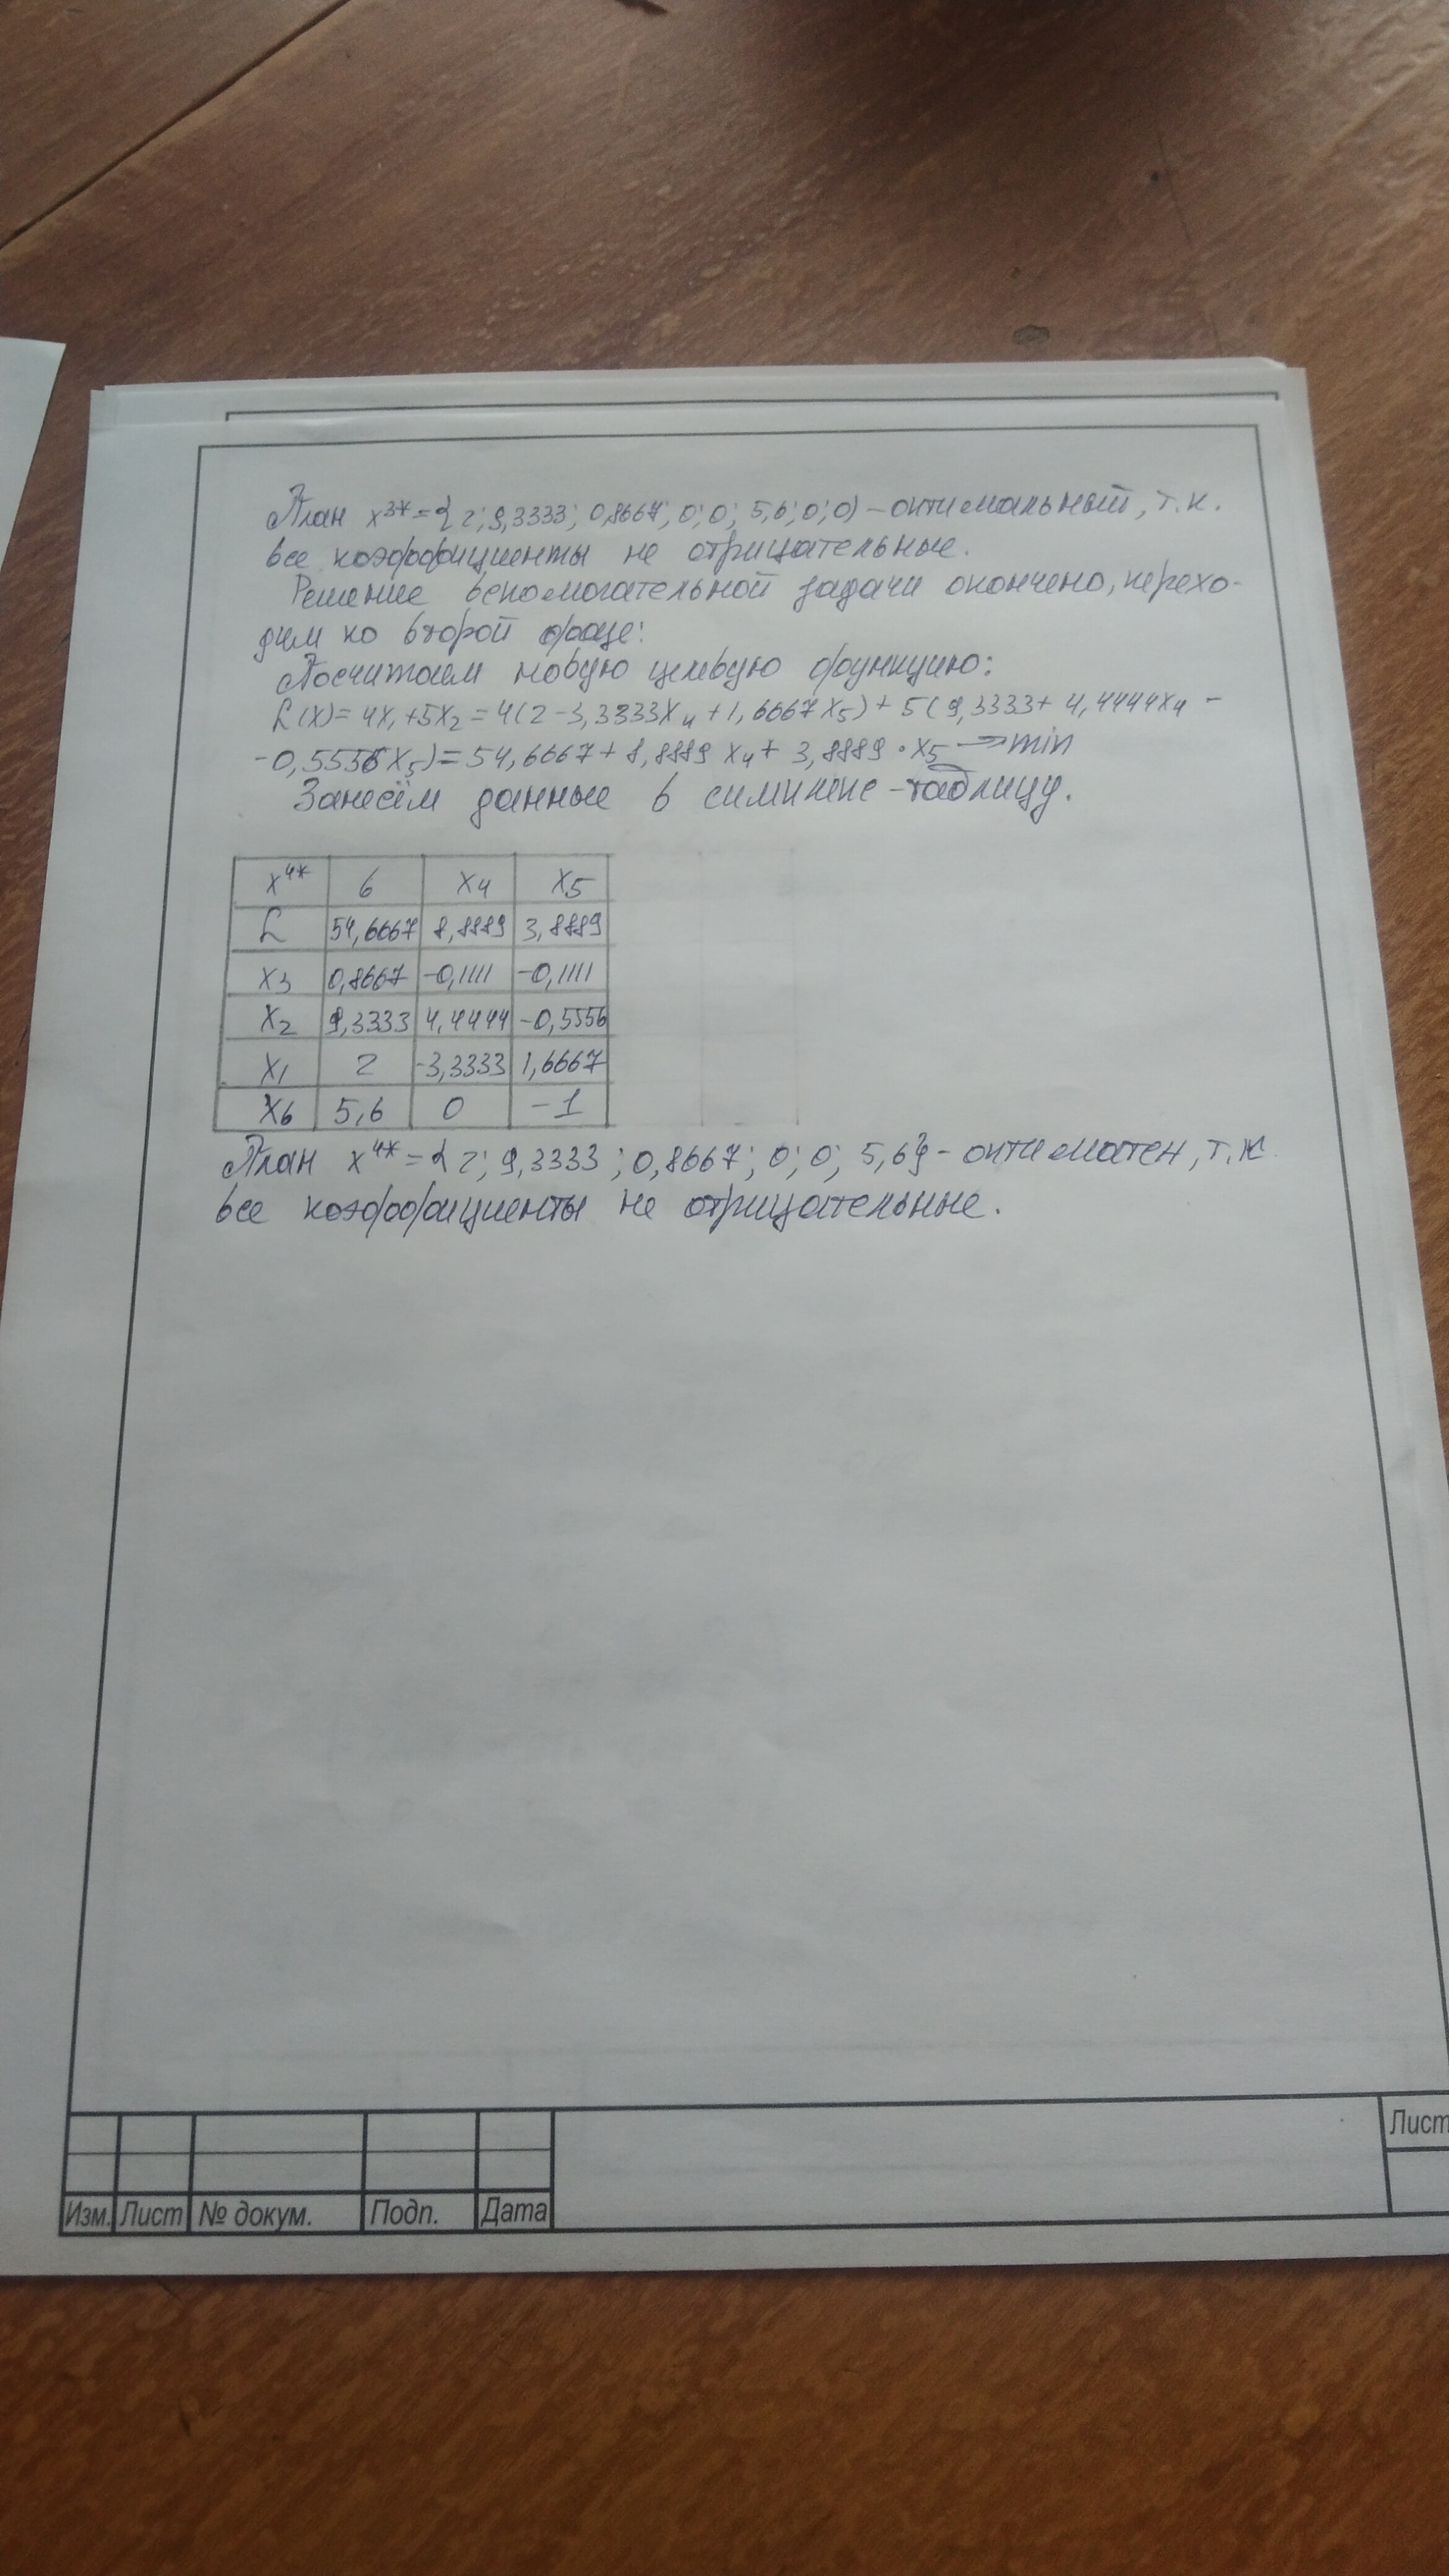 План x³*={2; 9,3333; 0,8667; 0; 0; 5,6; 0; 0) – оптимальный, т.к.
все коэффициенты не отрицательные.
Решение вспомогательной задачи окончено, перехо-
дим ко второй фазе:
Посчитаем новую целевую функцию:
L(X)= 4X₁+5X₂ = 4(2 -3,3333X₄ +1,6667X₅) + 5(9,3333+ 4,4444X₄ -
-0,5556X₅)=54,6667+ 8,8889 X₄+ 3,8889 · X₅ → min
Занесём данные в симплекс-таблицу.
X⁴* б X₄ X₅
L 54,6667 8,8889 3,8889
X₃ 0,8667 -0,1111 -0,1111
X₂ 9,3333 4,4444 -0,5556
X₁ 2 -3,3333 1,6667
X₆ 5,6 0 -1
План X⁴*={2; 9,3333; 0,8667; 0; 0; 5,6} - оптимален, т.к.
все коэффициенты не отрицательные.
Лист
Изм. Лист № докум. Подп. Дата